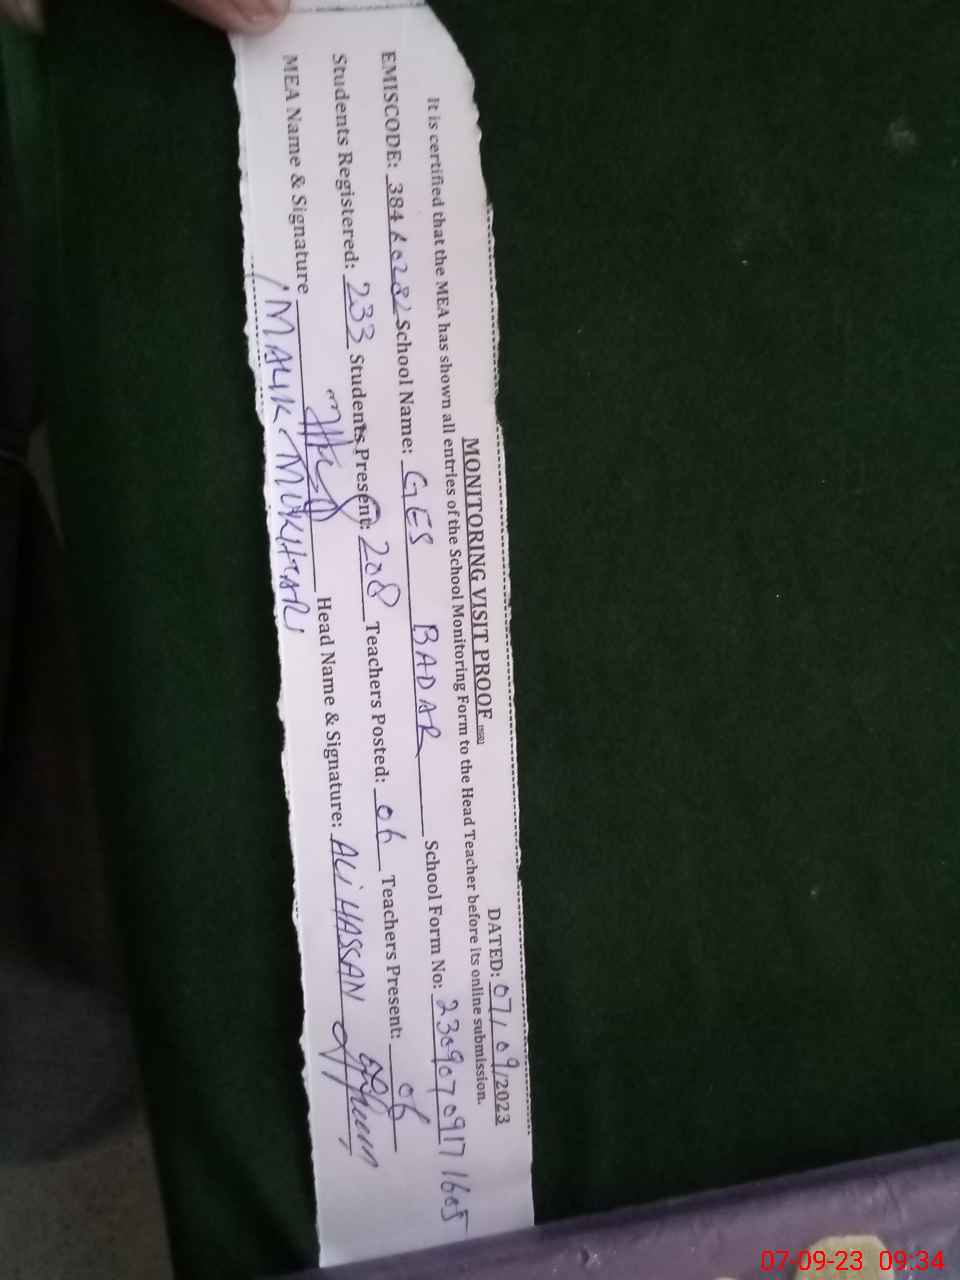 MONITORING VISIT PROOF
DATED: 07/09/2023
It is certified that the MEA has shown all entries of the School Monitoring Form to the Head Teacher before its online submission.
EMISCODE: 38440282 School Name: GES BADAR School Form No: 2309070917 1605
Students Registered: 233 Students Present: 208 Teachers Posted: 06 Teachers Present: 06
MEA Name & Signature Head Name & Signature: ALI HASSAN
MALIK MUKHTAR
07-09-23 09:34